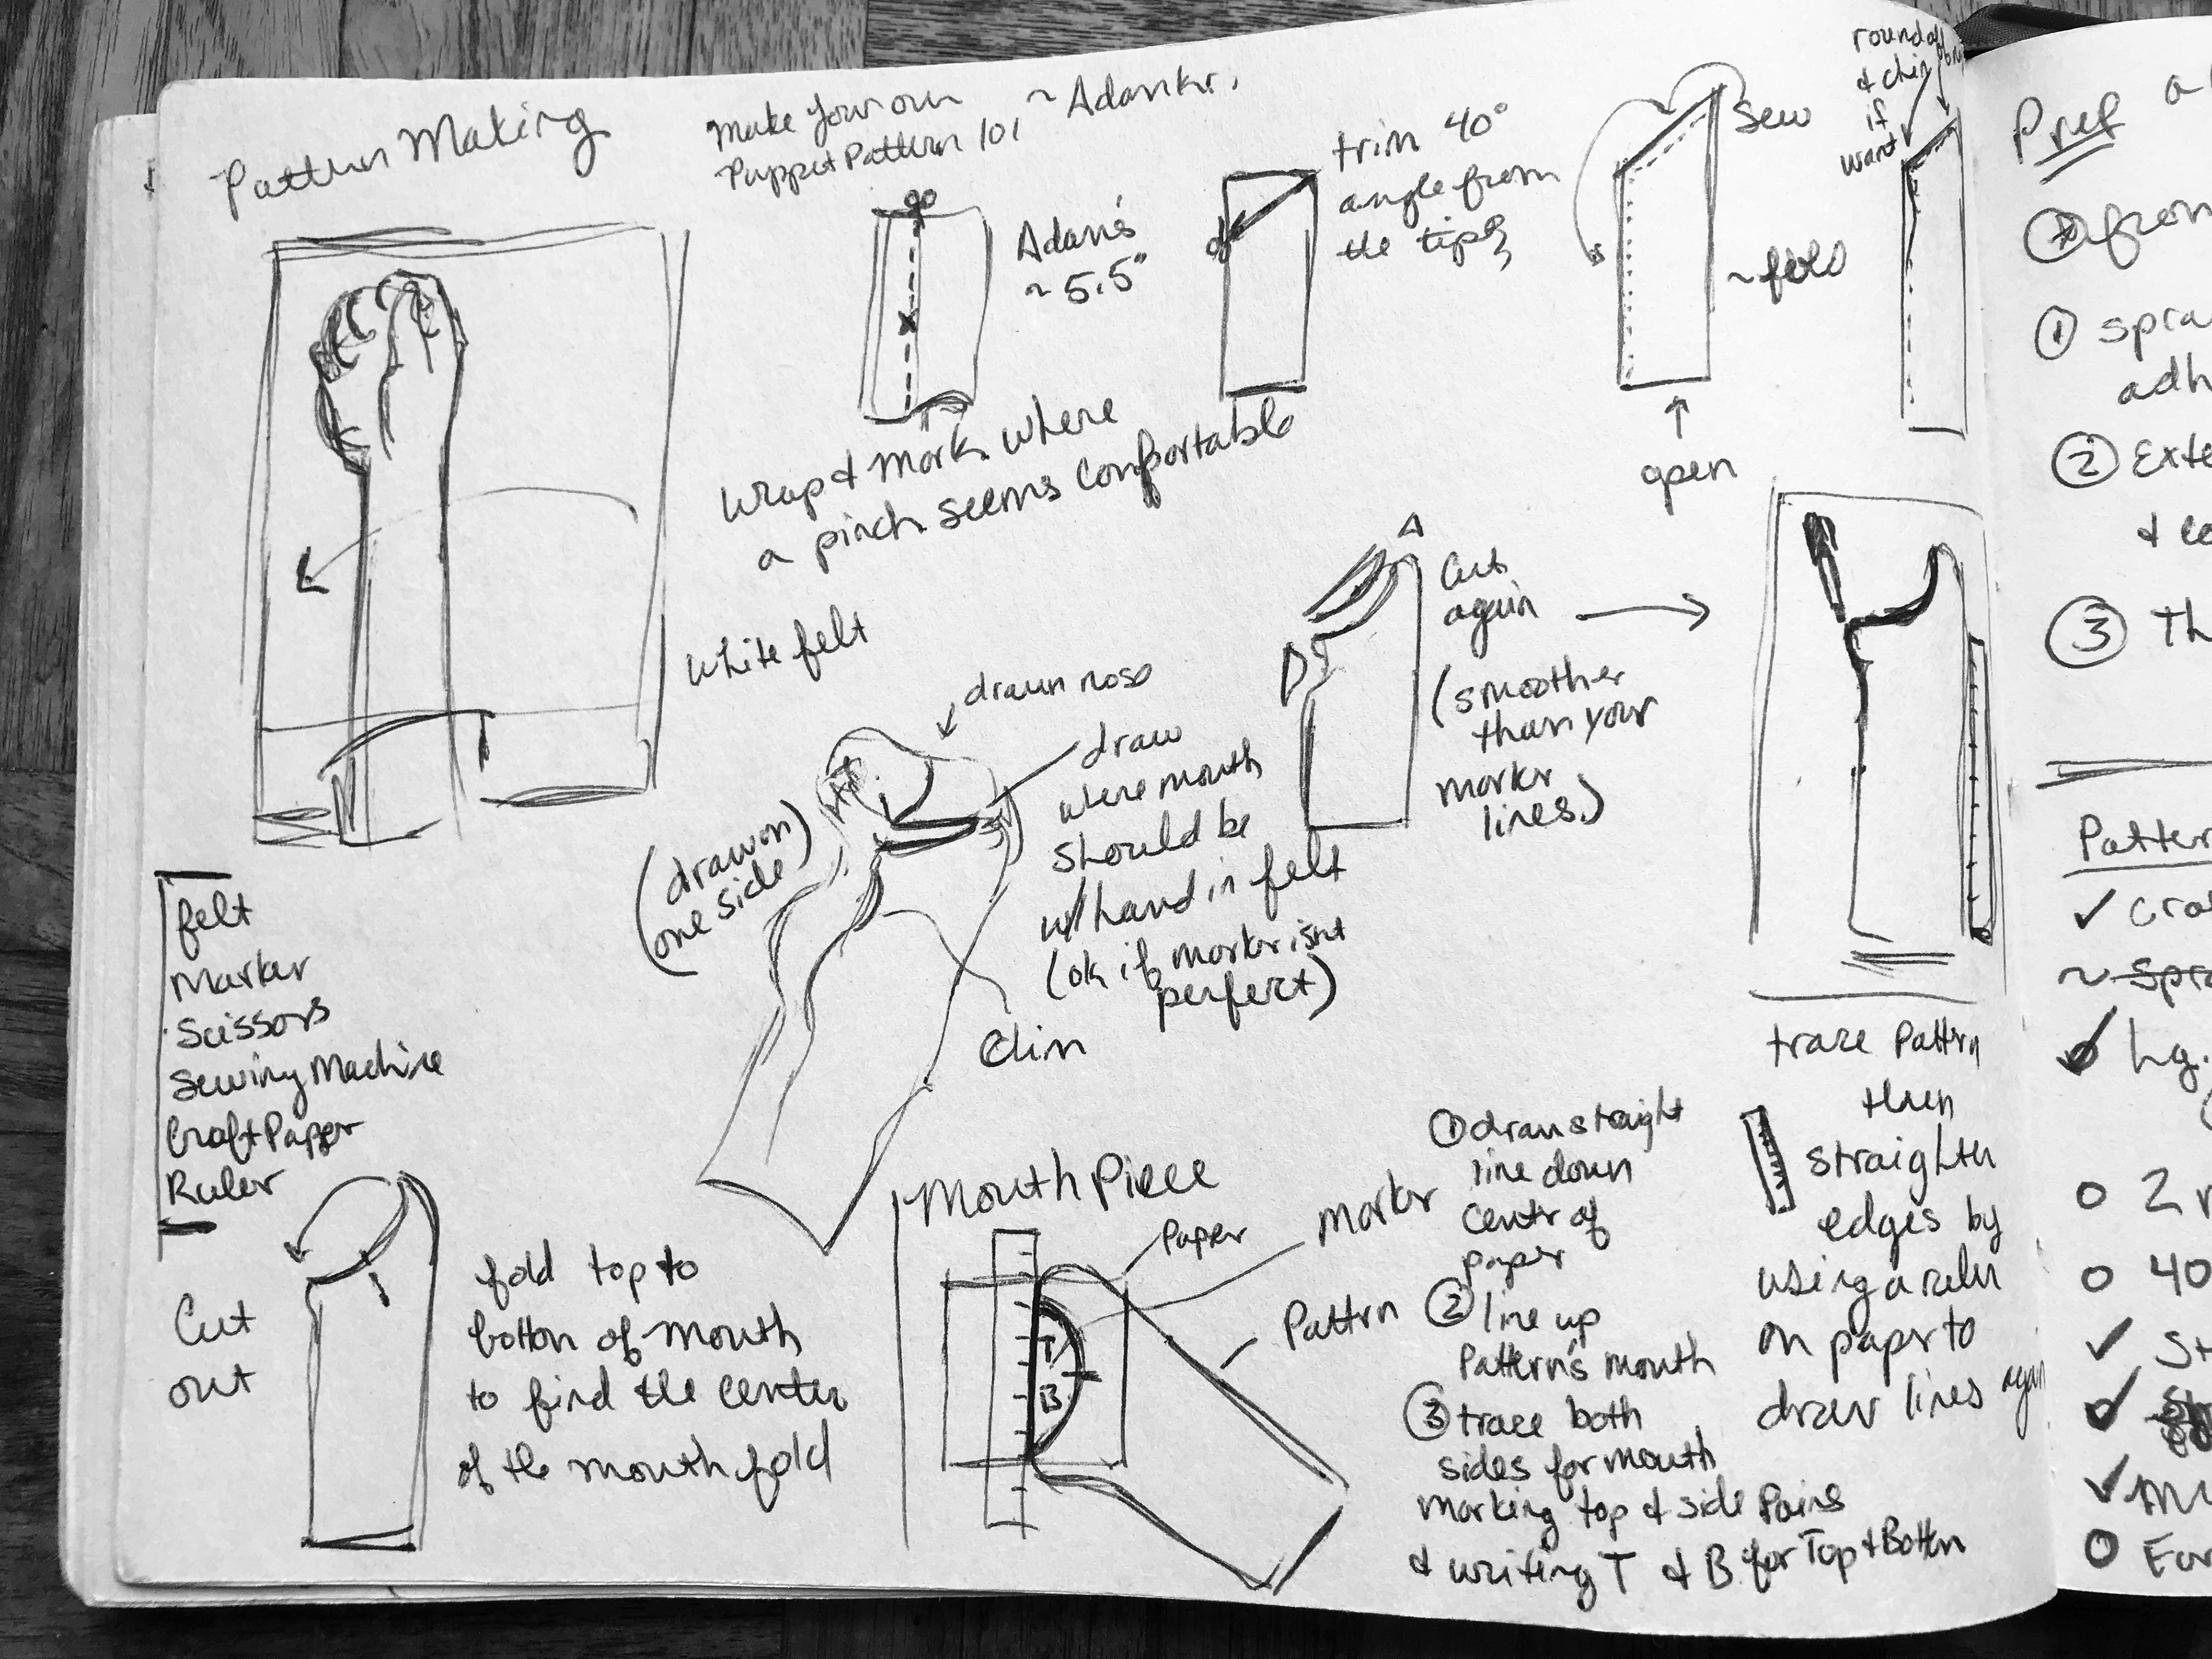 Pattern Making
Make your own
Puppet Pattern 101
~ Adam Kr.
Adam's
~ 5.5"
trim 40°
angle from
the tips
Sew
~fold
open
round off
& chin
if
want
Wrap & mark where
a pinch seems comfortable
White felt
drawn nose
draw
where mouth
should be
w/ hand in felt
(ok if marker isnt
perfect)
(drawn
one side)
Chin
Cut
again
(smoother
than your
marker
lines.)
trace Pattern
then
straighten
edges by
using a ruler
on paper to
draw lines again
felt
Marker
Scissors
Sewing Machine
Craft Paper
Ruler
Cut
out
fold top to
bottom of mouth
to find the center
of the mouth fold
Mouth Piece
Paper
marker
Pattern
T
B
① draw straight
line down
center of
paper
② line up
Pattern's mouth
③ trace both
sides for mouth
marking top & side Pains
& writing T & B for Top & Bottom
Pref
① spra
adh
② Exte
③ Th
Patter
✓ Cra
~ Spra
Lg.
○ 2
○ 40
✓ St